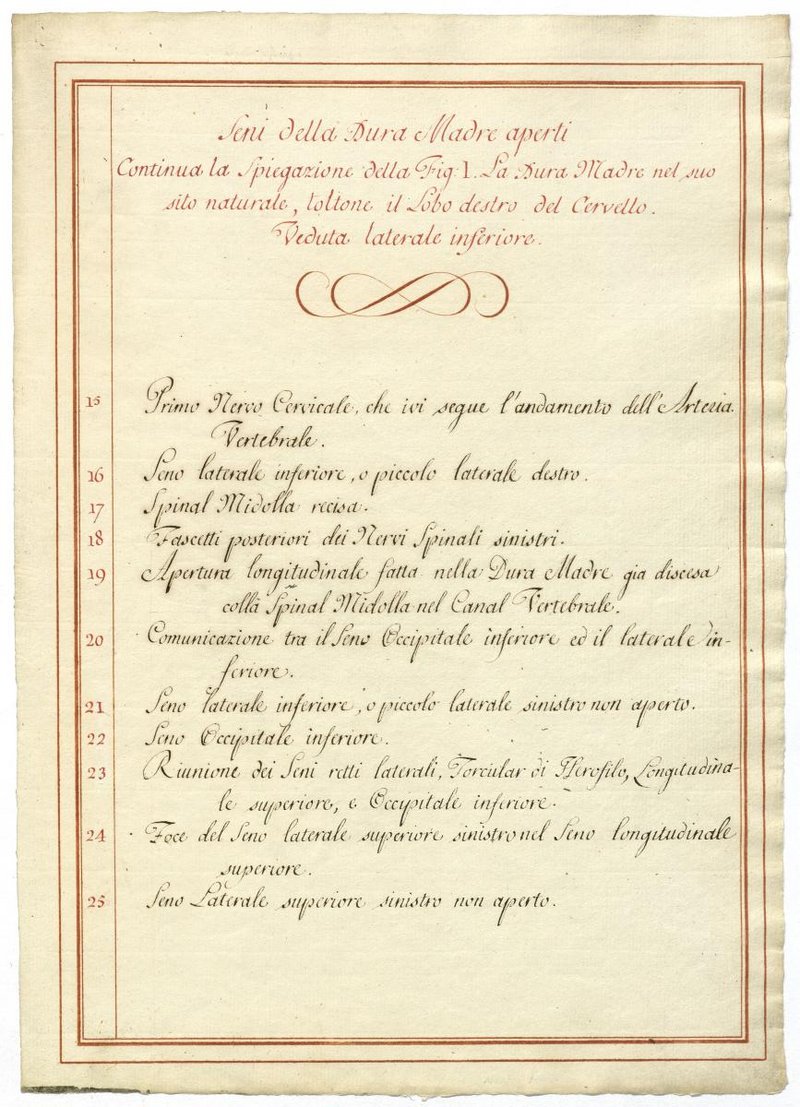 Seni della Dura Madre aperti
Continua la Spiegazione della Fig: I. La Dura Madre nel suo
sito naturale, toltone il Lobo destro del Cervello.
Veduta laterale inferiore.
15 Primo Nervo Cervicale, che ivi segue l'andamento dell'Arteria
Vertebrale.
16 Seno laterale inferiore, o piccolo laterale destro.
17 Spinal Midolla recisa.
18 Fascetti posteriori dei Nervi Spinali sinistri.
19 Apertura longitudinale fatta nella Dura Madre gia discesa
colla Spinal Midolla nel Canal Vertebrale.
20 Comunicazione tra il Seno Occipitale inferiore ed il laterale in-
feriore.
21 Seno laterale inferiore, o piccolo laterale sinistro non aperto.
22 Seno Occipitale inferiore.
23 Riunione dei Seni retti laterali, Torcular di Herofilo, Longitudina-
le superiore, e Occipitale inferiore.
24 Foce del Seno laterale superiore sinistro nel Seno longitudinale
superiore.
25 Seno Laterale superiore sinistro non aperto.